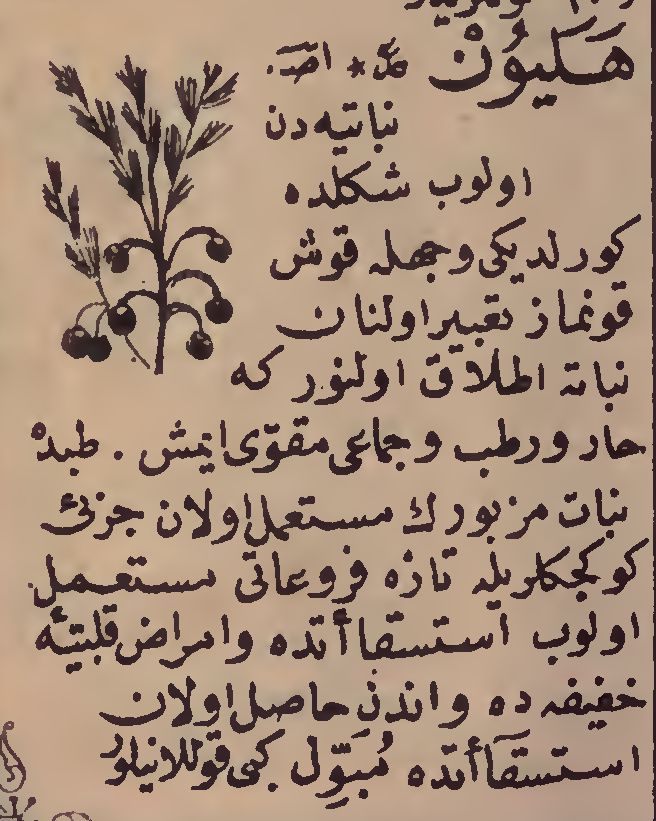 هَـكـيوُنْ صل * اصـ.
نباتيه دن
اولوب شكلده
كورلديكى وجهله قوش
قونماز تعبير اولنان
نباته اطلاق اولنور كه
حار ورطب وجماعى مقوّى ايمش . طبده
نبات مزبورك مستعمل اولان جزئى
كوكجكلريله تازه فروعاتى مستعمل
اولوب استسقاآتده وامراض قلبيّه
خفيفه ده واندن حاصل اولان
استسقاآتده مُبَوّل كبى قوللانيلور